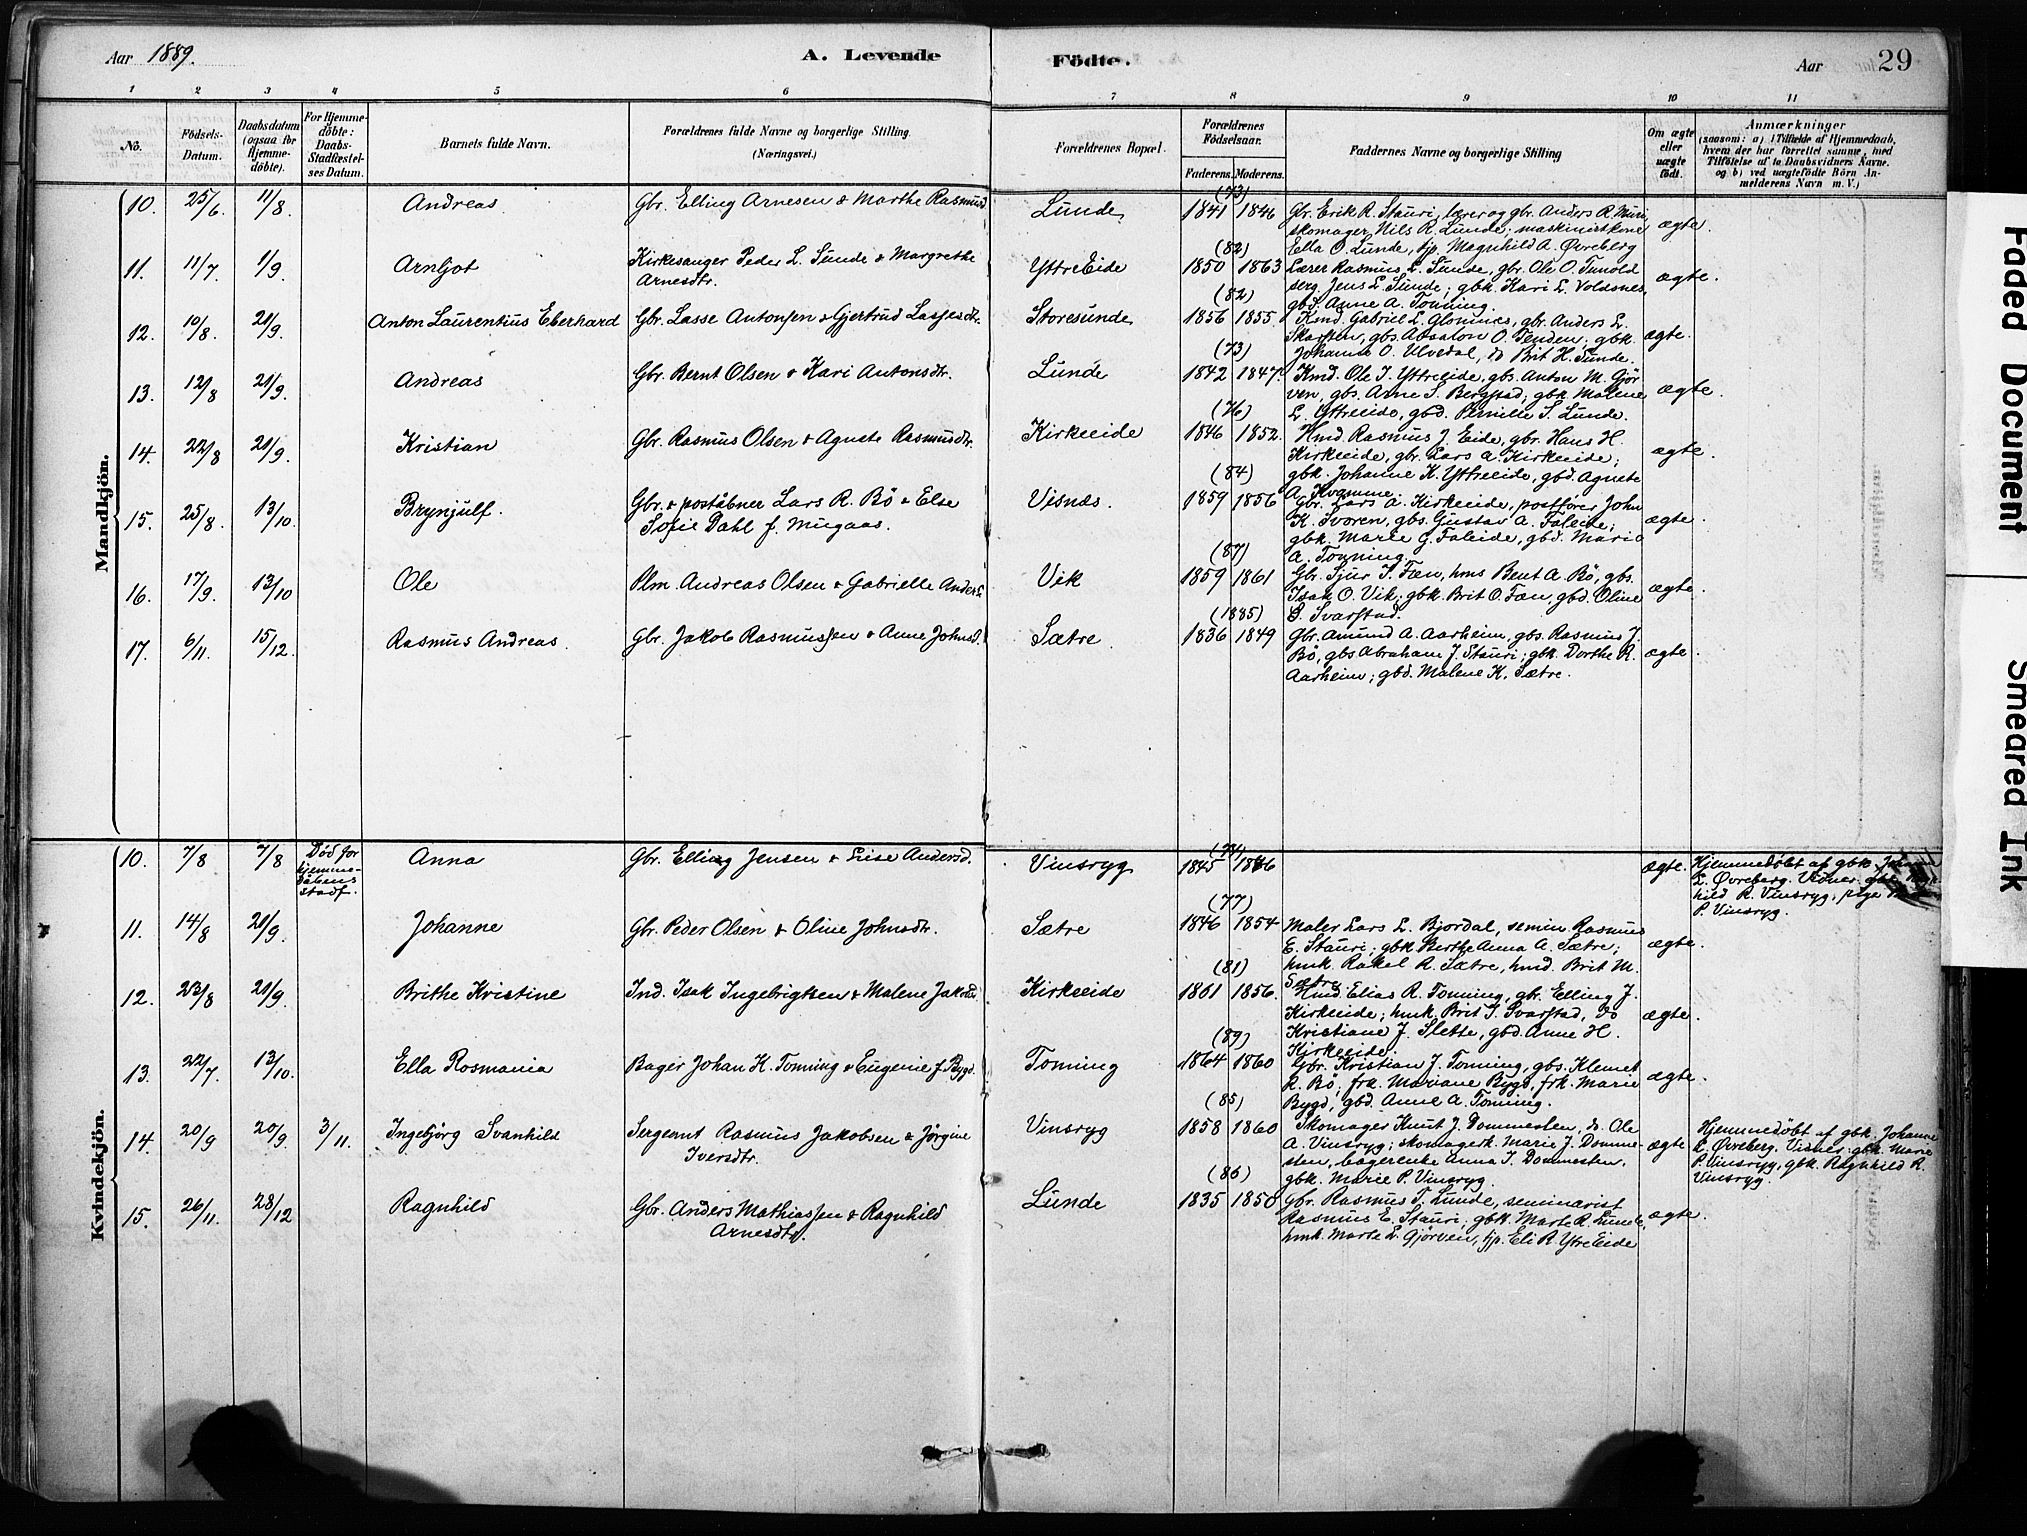 Aar 1889. A. Levende Födte. Aar 29
1 2 3 4 5 6 7 8 9 10 11
No. Födsels-Datum. Daabsdatum (ogsaa for Hjemme-döbte). For Hjemme-döbte: Daabs-Stadfæstel-ses Datum. Barnets fulde Navn. Forældrenes fulde Navne og borgerlige Stilling (Næringsvei.) Forældrenes Bopæl. Forældrenes Födselsaar. Faderens. Moderens. Faddernes Navne og borgerlige Stilling Om ægte eller uægte födt. Anmærkninger (saasom: a) i Tilfælde af Hjemmedaab, hvem der har forrettet samme, med Tilföielse af to Daabsvidners Navne. og b) ved uægtefödte Börn An-melderens Navn m. V.)
Mandkjön.
10. 25/6 11/8. Andreas Gbr. Elling Arnesen & Marthe Rasmusd Lunde (73) 1841 1846 Gbr. Erik R. Stauri, lærer og gbr. Anders R. Muri, ægte.
skomager Nils R. Lunde; maskinistkone
Ella O. Lunde, tjp. Magnhild A. Øvreberg
11. 11/7 1/9. Arnljot Kirkesanger Peder L. Sunde & Margrethe Yttre Eide (82) 1850 1863 Lærer Rasmus L. Sunde, gbr. Ole O. Tunold ægte.
Arnesdtr. serg. Jens L. Sunde; gbk. Kari L. Voldsnes,
gbd. Anne A. Tonning.
12. 10/8. 21/9. Anton Laurentius Eberhard Gbr. Lasse Antonsen & Gjertrud Lassesdtr. Storesunde (82) 1856 1855 Kmd. Gabriel L. Glomnes, gbr. Anders L. ægte.
Skarsten, gbs. Absalon O. Tenden; gbk.
Johanne O. Ulvedal, do Brit H. Sunde.
13. 12/8 21/9. Andreas Gbr. Bernt Olsen & Kari Antonsdtr. Lunde (73) 1842 1847. Kmd. Ole J. Yttreeide, gbs. Anton M. Gjör ægte.
ven, gbs. Arne S. Bergstad; gbk. Malene
L. Yttreeide, gbd. Pernille S. Lunde.
14. 22/8 21/9. Kristian Gbr. Rasmus Olsen & Agnete Rasmusdtr. Kirkeeide (76) 1846 1852. Hmd. Rasmus J. Eide, gbr. Hans H. ægte.
Kirkeeide, gbr. Lars A. Kirkeeide;
gbk. Johanne K. Yttreeide, gbd. Agnete
A. Kvamme.
15. 25/8. 13/10. Brynjulf. Gbr. & poståbner Lars R. Bö & Else Visnæs. (84) 1859 1856 Gbr. Lars A. Kirkeeide, postförer John ægte.
Sofie Dahl f. Mugaas. K. Svoren, gbs. Gustav A. Faleide;
gbk. Marie G. Faleide, gbd. Marie
A. Tonning.
16. 17/9. 13/10 Ole Plm. Andreas Olsen & Gabrielle Anders Vik (87) 1859 1861 Gbr. Sjur J. Fæn, hms Bent A. Bö, gbs. ægte.
Isak O. Vik; gbk. Brit O. Fæn, gbd. Oline
S. Svarstad.
17. 6/11. 15/12. Rasmus Andreas. Gbr. Jakob Rasmussen & Anne Johnsd. Sætre. (1885) 1836 1849 Gbr. Amund A. Aarheim, gbs. Rasmus J. ægte.
Bö, gbs Abraham J. Stauri; gbk. Dorthe R.
Aarheim; gbd. Malene K. Sætre.
Kvindekjön.
10. 7/8 7/8 Död för Anna Gbr. Elling Jensen & Lise Andersd. Vinsryg 1845 1846 ægte. Hjemmedöbt af gbk.
hjemme- L. Øvreberg.
dåbens hild R. Vinsryg,
stadf. P. Vinsryg.
11. 14/8 21/9. Johanne Gbr. Peder Olsen & Oline Johnsdtr. Sætre (77) 1846 1854 Maler Lars L. Bjordal, semin Rasmus ægte.
E. Stauri; gbk Berthe Anna A. Sætre;
hmk. Rakel R. Sætre, hmd. Brit M.
Sætre
12. 23/8 21/9. Brithe Kristine Ind. Isak Ingebrigtsen & Malene Jakobsd. Kirkeeide (81) 1861 1856. Hmd. Elias R. Tonning, gbr. Elling J. ægte.
Kirkeeide; hmk. Brit I. Svarstad, do
Kristiane J. Slette, gbd. Anne H.
Kirkeeide.
13. 22/7. 13/10. Ella Rosmania Bager Johan K. Tonning & Eugenie f. Bygd. Tonning (89) 1864 1860 Gbr. Kristian J. Tonning, gbs. Klemet ægte.
R. Bö; frk. Mariane Bygd, frk. Marie
Bygd, gbd. Anne A. Tonning.
14. 20/9 20/9. 3/11. Ingebjörg Svanhild Sergeant Rasmus Jakobsen & Jörgine Vinsryg (85) 1858 1860 Skomager Knut J. Dommesten, do. Ole ægte Hjemmedöbt af gbk. Johanne
Iversdtr. A. Vinsryg; skomagerk. Marie J. Domme- L. Øvreberg. Vidner: gbk. Marie
sten, bagerenke Anna I. Dommesten, P. Vinsryg, gbk. Ragnhild R.
gbk. Marie P. Vinsryg. Vinsryg.
15. 26/11. 28/12 Ragnhild Gbr. Anders Mathiassen & Ragnhild Lunde (86) 1835 1850 Gbr. Rasmus T. Lunde, seminarist ægte.
Arnesdtr. Rasmus E. Stauri; gbk. Marte R. Lunde,
hmk. Marte L. Gjörven, tjp. Eli R. Ytre Eide
Faded Document
Smeared Ink